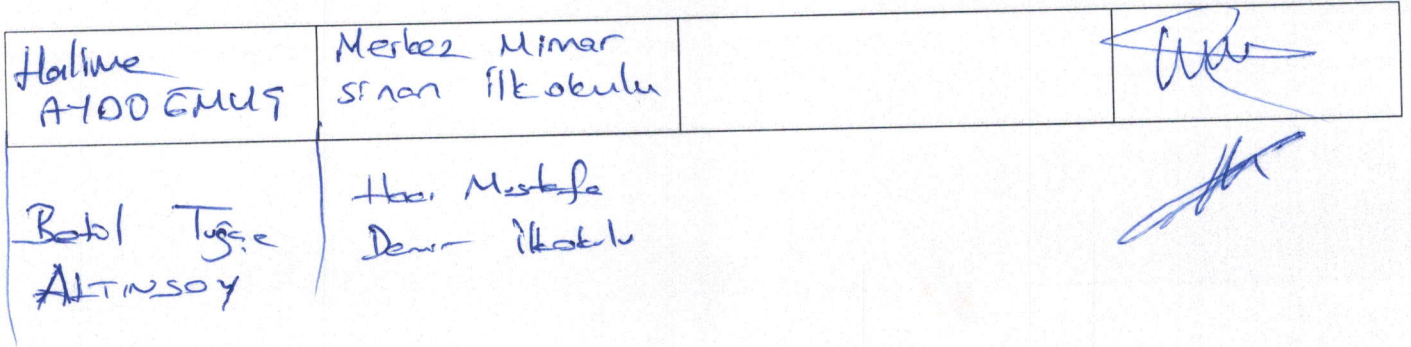 Halime
AYDOĞMUŞ
Merkez Mimar
Sinan ilkokulu
Betül Tuğçe
ALTINSOY
Hacı Mustafa
Demir ilkokulu